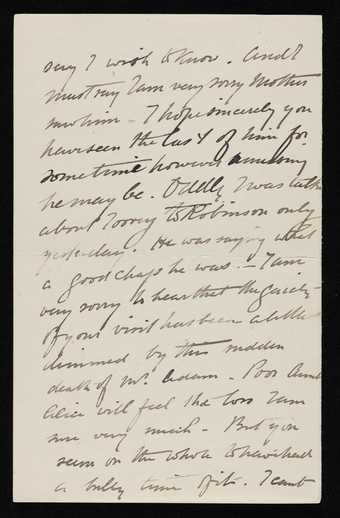 say I wish to know. And I
must say I am very sorry Mother
saw him - I hope sincerely you
have seen the last of him for
some time however amusing
he may be. Oddly I was
about to Robinson only
yesterday. He was saying what
a good chap he was. - I am
very sorry to hear that the gaiety
of your visit has been a little
dimmed by the sudden
death of Mr. Adam. Poor Aunt
Alice will feel the loss I am
sure very much - But you
seem on the whole to have had
a bully time of it. I can't